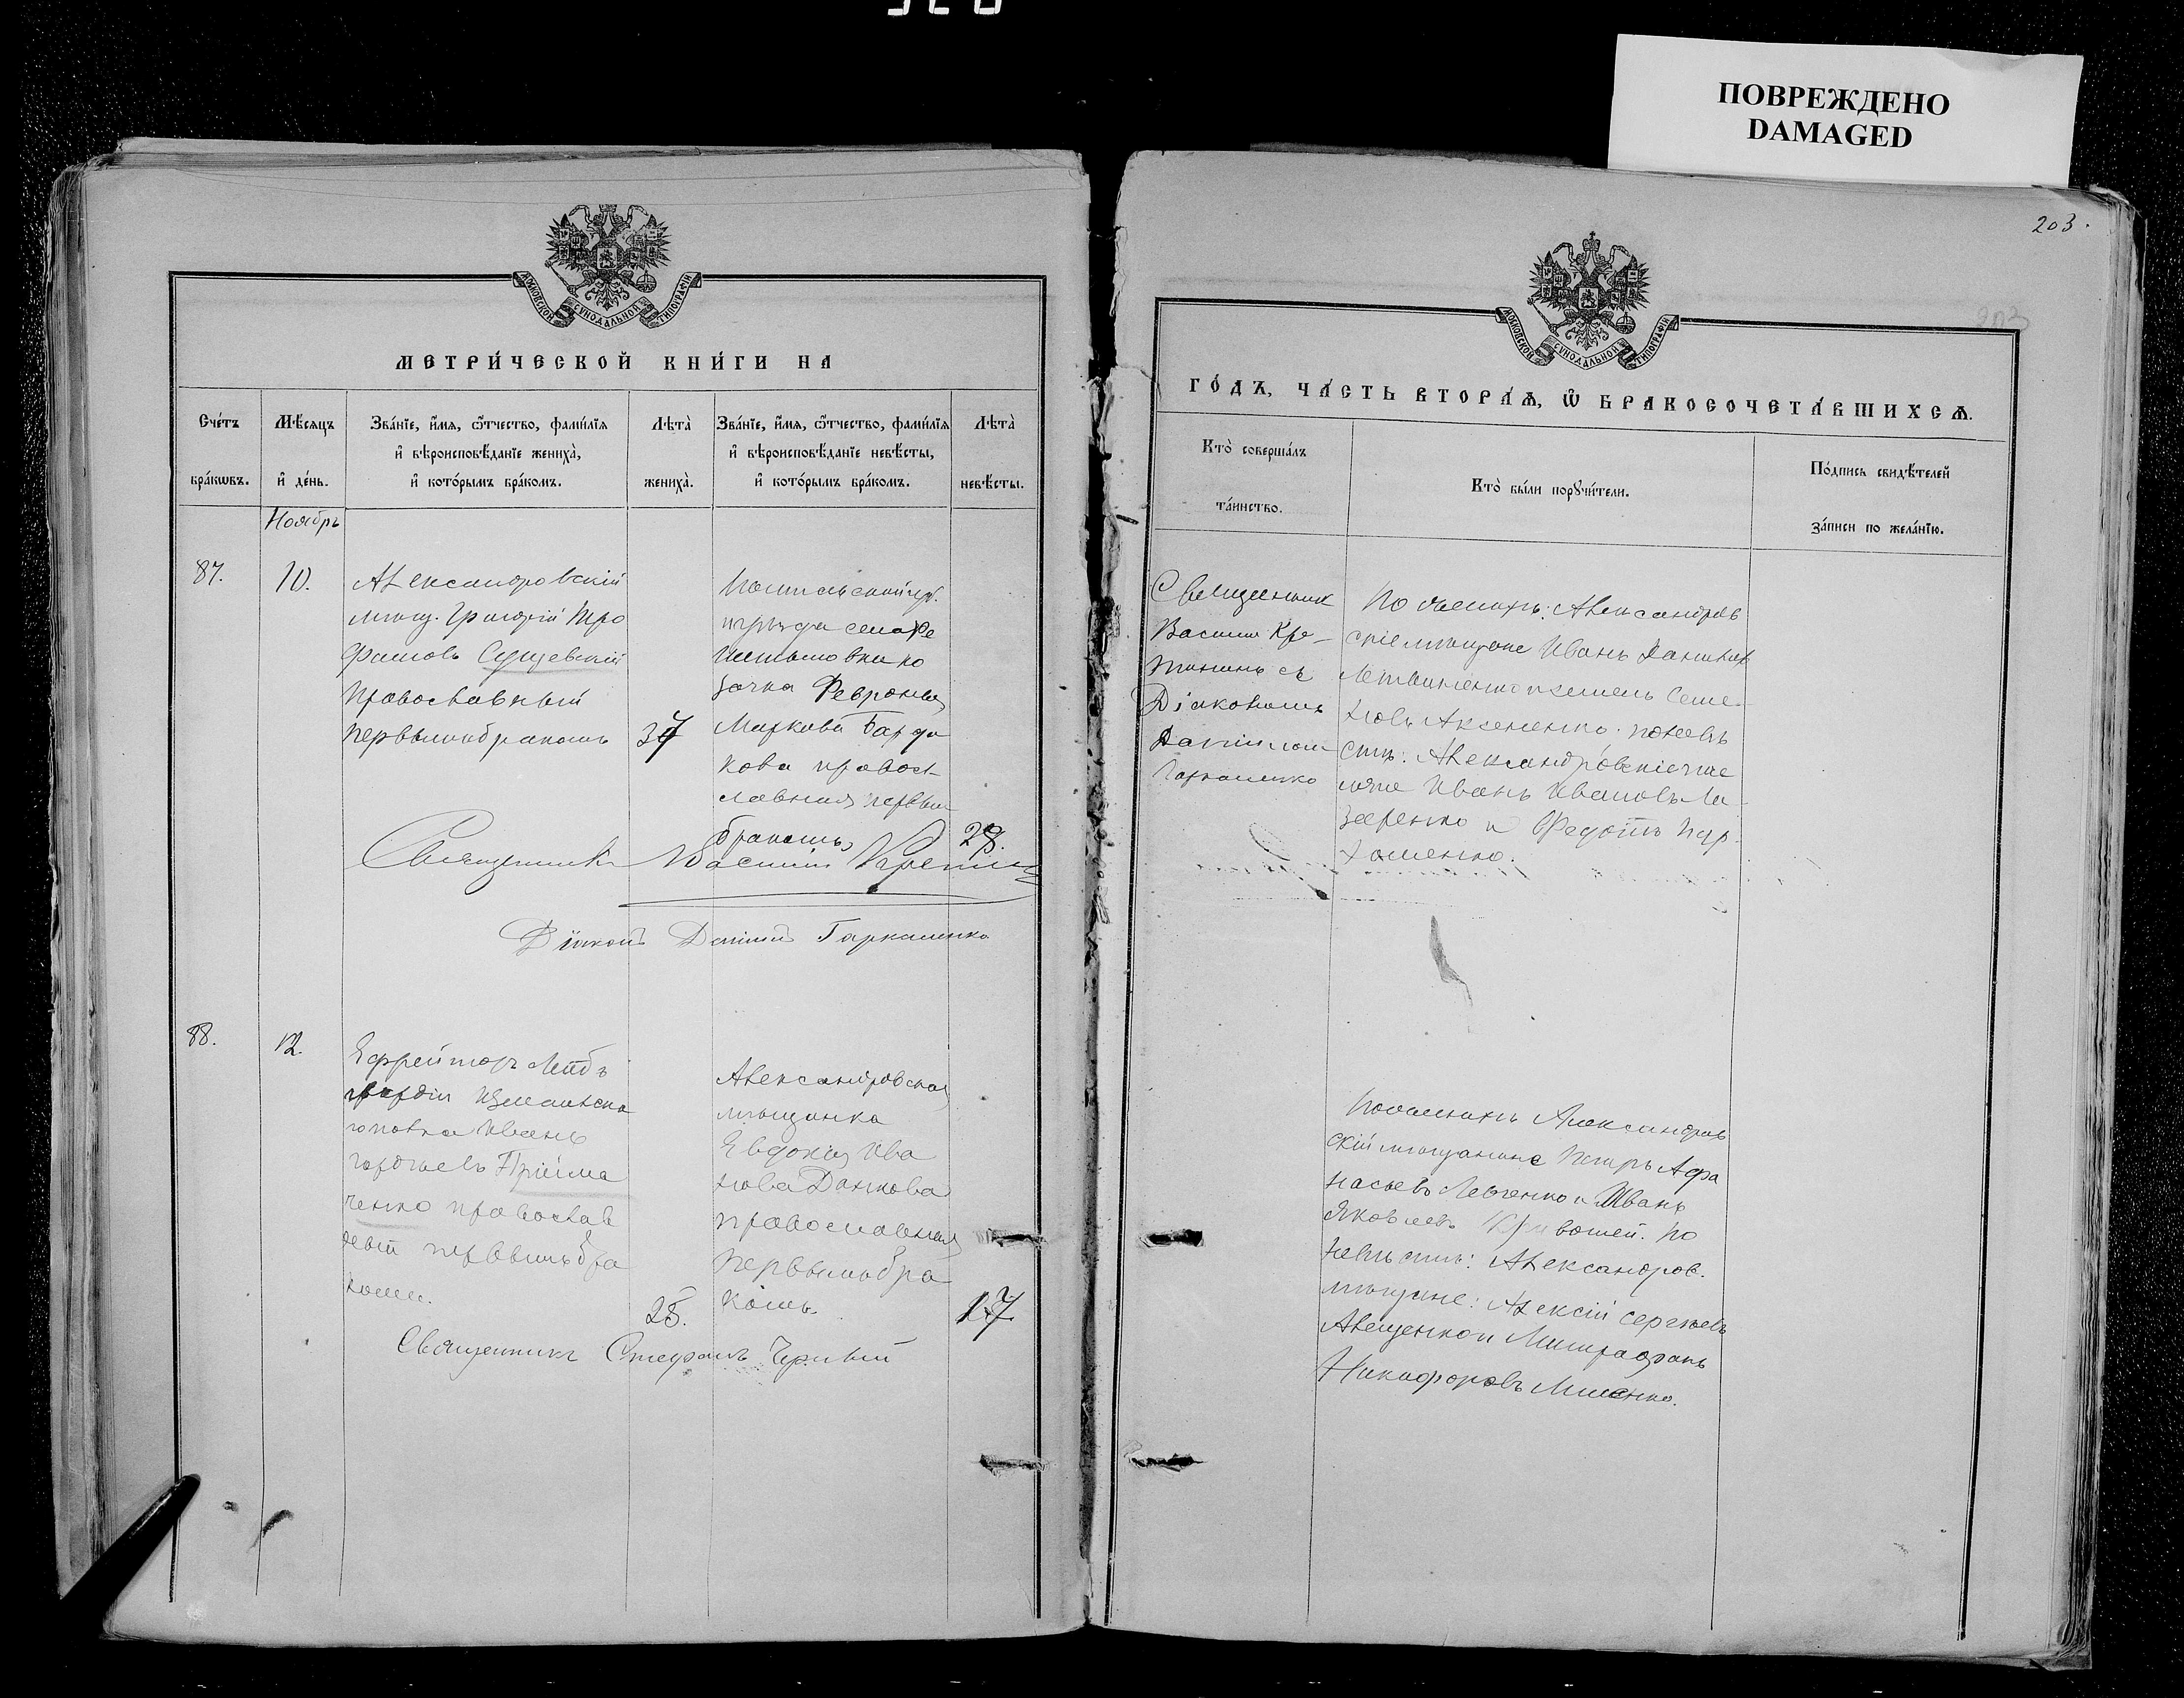 ПОВРЕЖДЕНО
DAMAGED
203.
МОСКОВСКОЙ СѴНОДАЛЬНОЙ ТИПОГРАФІИ
МЕТРИ́ЧЕСКОЙ КНИ́ГИ НА
Сче́тъ
бра́кѡвъ.
Мѣ́сяцъ
и҆ де́нь.
Зва́нїе, и҆́мѧ, ѻ҆́тчество, фами́лїѧ
и҆ вѣроисповѣ́данїе жениха̀,
и҆ кото́рымъ бра́комъ.
Лѣта̀
жениха̀.
Зва́нїе, и҆́мѧ, ѻ҆́тчество, фами́лїѧ
и҆ вѣроисповѣ́данїе невѣ́сты,
и҆ кото́рымъ бра́комъ.
Лѣта̀
невѣ́сты.
Ноябрь
87.
10.
Александровскій
мѣщ. Григорій Тро
фимовъ Сущевскій
православный
первымъ бракомъ
37
уѣзда села
зачка Феврония
Маркова Гарда
кова правос-
лавная первым
бракомъ,
29.
Священникъ Василій Крѣтин
Діаконъ Даніилъ Гаркашенко
88.
12.
Ефрейторъ Лейбъ
гвардіи Измаилска
го полка Иванъ
Гордѣевъ Прійма
ченко православ
ный первымъ бра
комъ.
25.
Александровская
мѣщанка
Евдокія Ива
нова Данкова
православная
первымъ бра
комъ.
17
Священникъ Стефанъ Черный
МОСКОВСКОЙ СѴНОДАЛЬНОЙ ТИПОГРАФІИ
ГО́ДЪ, ЧА́СТЬ ВТОРА́Ѧ, Ѡ҆ БРАКОСОЧЕТА́ВШИХСѦ.
Кто̀ соверша́лъ
та́инство.
Кто̀ бы́ли порꙋчи́тели.
По́дпись свидѣ́телей
за́писи по жела́нїю.
Священник
Василій Кре-
тининъ съ
Діакономъ
Даніиломъ
Гаркашенко
По женихѣ: Александров
скіе мѣщане Иванъ Данилов
Семе-
новъ Аксененко. по невѣ
стѣ: Александровскіе мѣ
щане Иванъ Ивановъ Ла-
заренко и Федотъ Пар-
хоменко.
По женихѣ Александров
скій мѣщанине Петръ Афа
насьевъ Левченко и Иванъ
Яковлевъ Кривошей. По
невѣстѣ: Александров.
мѣщане: Алексій Сергѣевъ
Авещенко и Митрофанъ
Никифоровъ